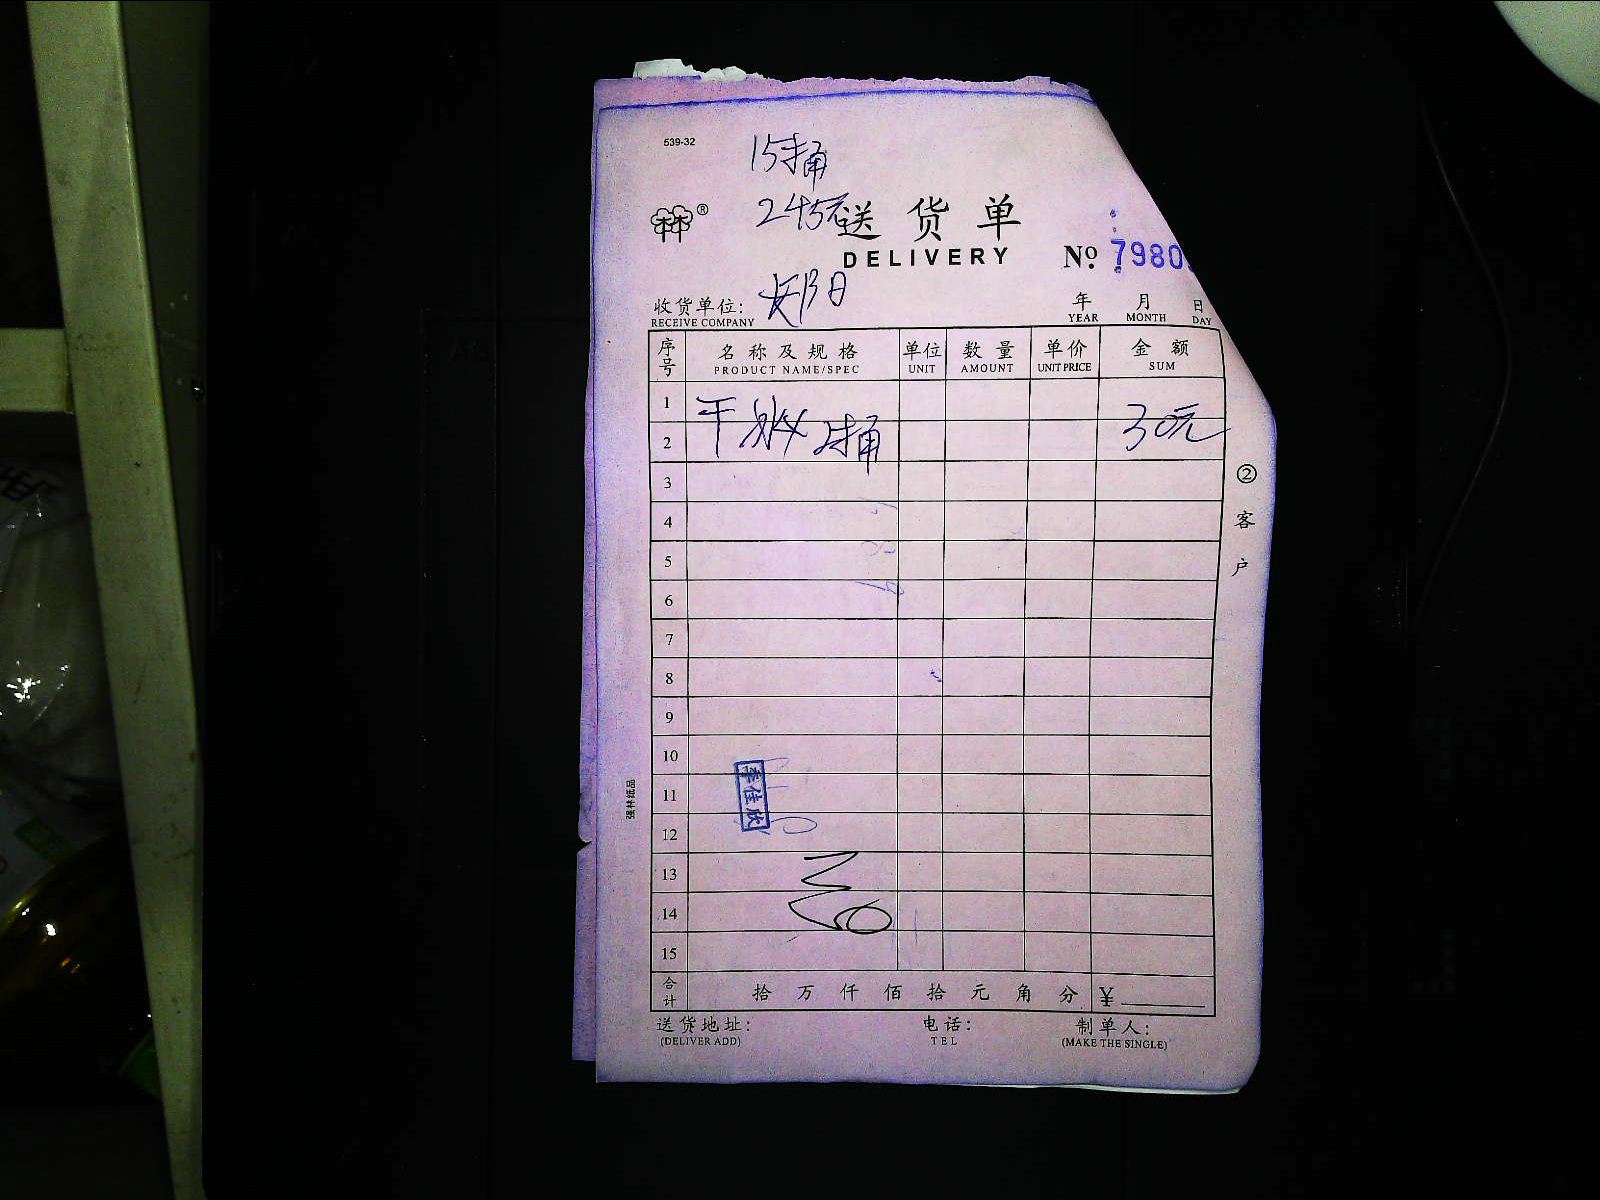 539-32
15捅
245元
林林®
送货单
DELIVERY
№ 7980
收货单位:
RECEIVE COMPANY
年 月 日
YEAR MONTH DAY
序号 名称及规格 单位 数量 单价 金额
PRODUCT NAME/SPEC UNIT AMOUNT UNIT PRICE SUM
1
2 干 捅 30元
3
4
5
6
7
8
9
10
11
12
13
14
15
李佳欣
② 客户
强林纸品
合计 拾 万 仟 佰 拾 元 角 分 ¥
送货地址: 电话: 制单人:
(DELIVER ADD) TEL (MAKE THE SINGLE)